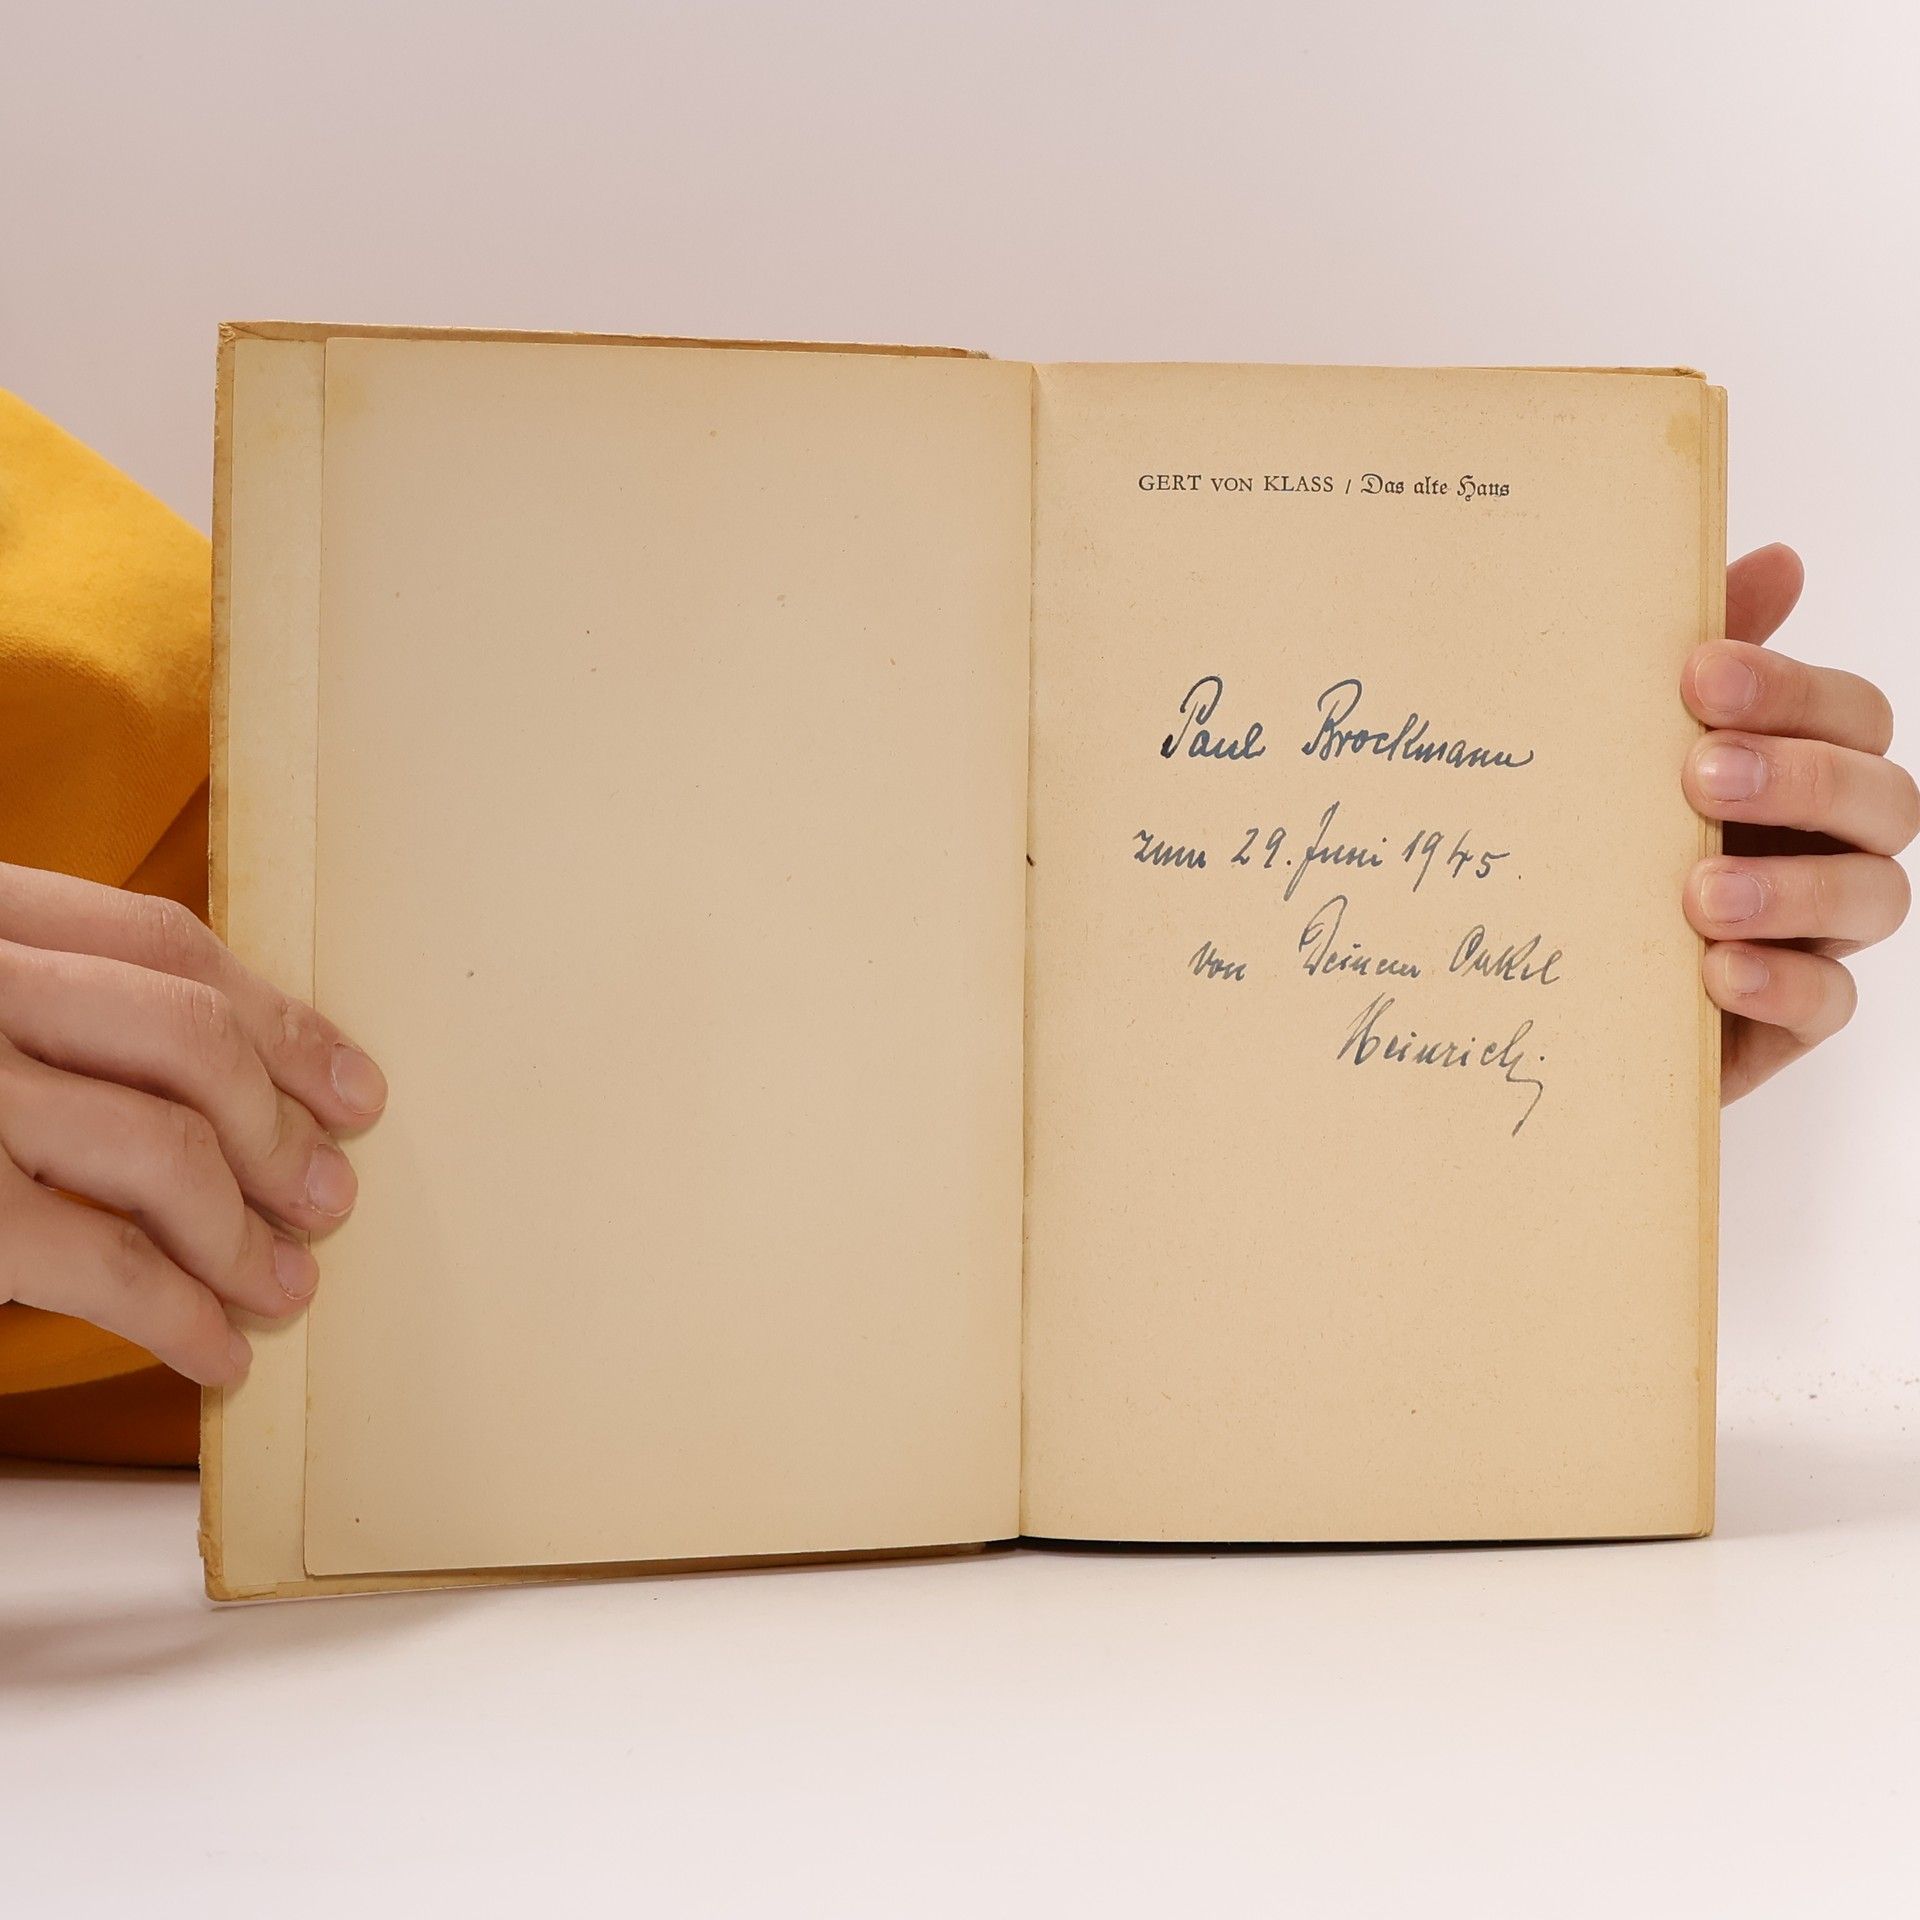 GERT VON KLASS / Das alte Haus
Paul Brockmann
zum 29. Juni 1945.
von Deinem Onkel
Heinrich.